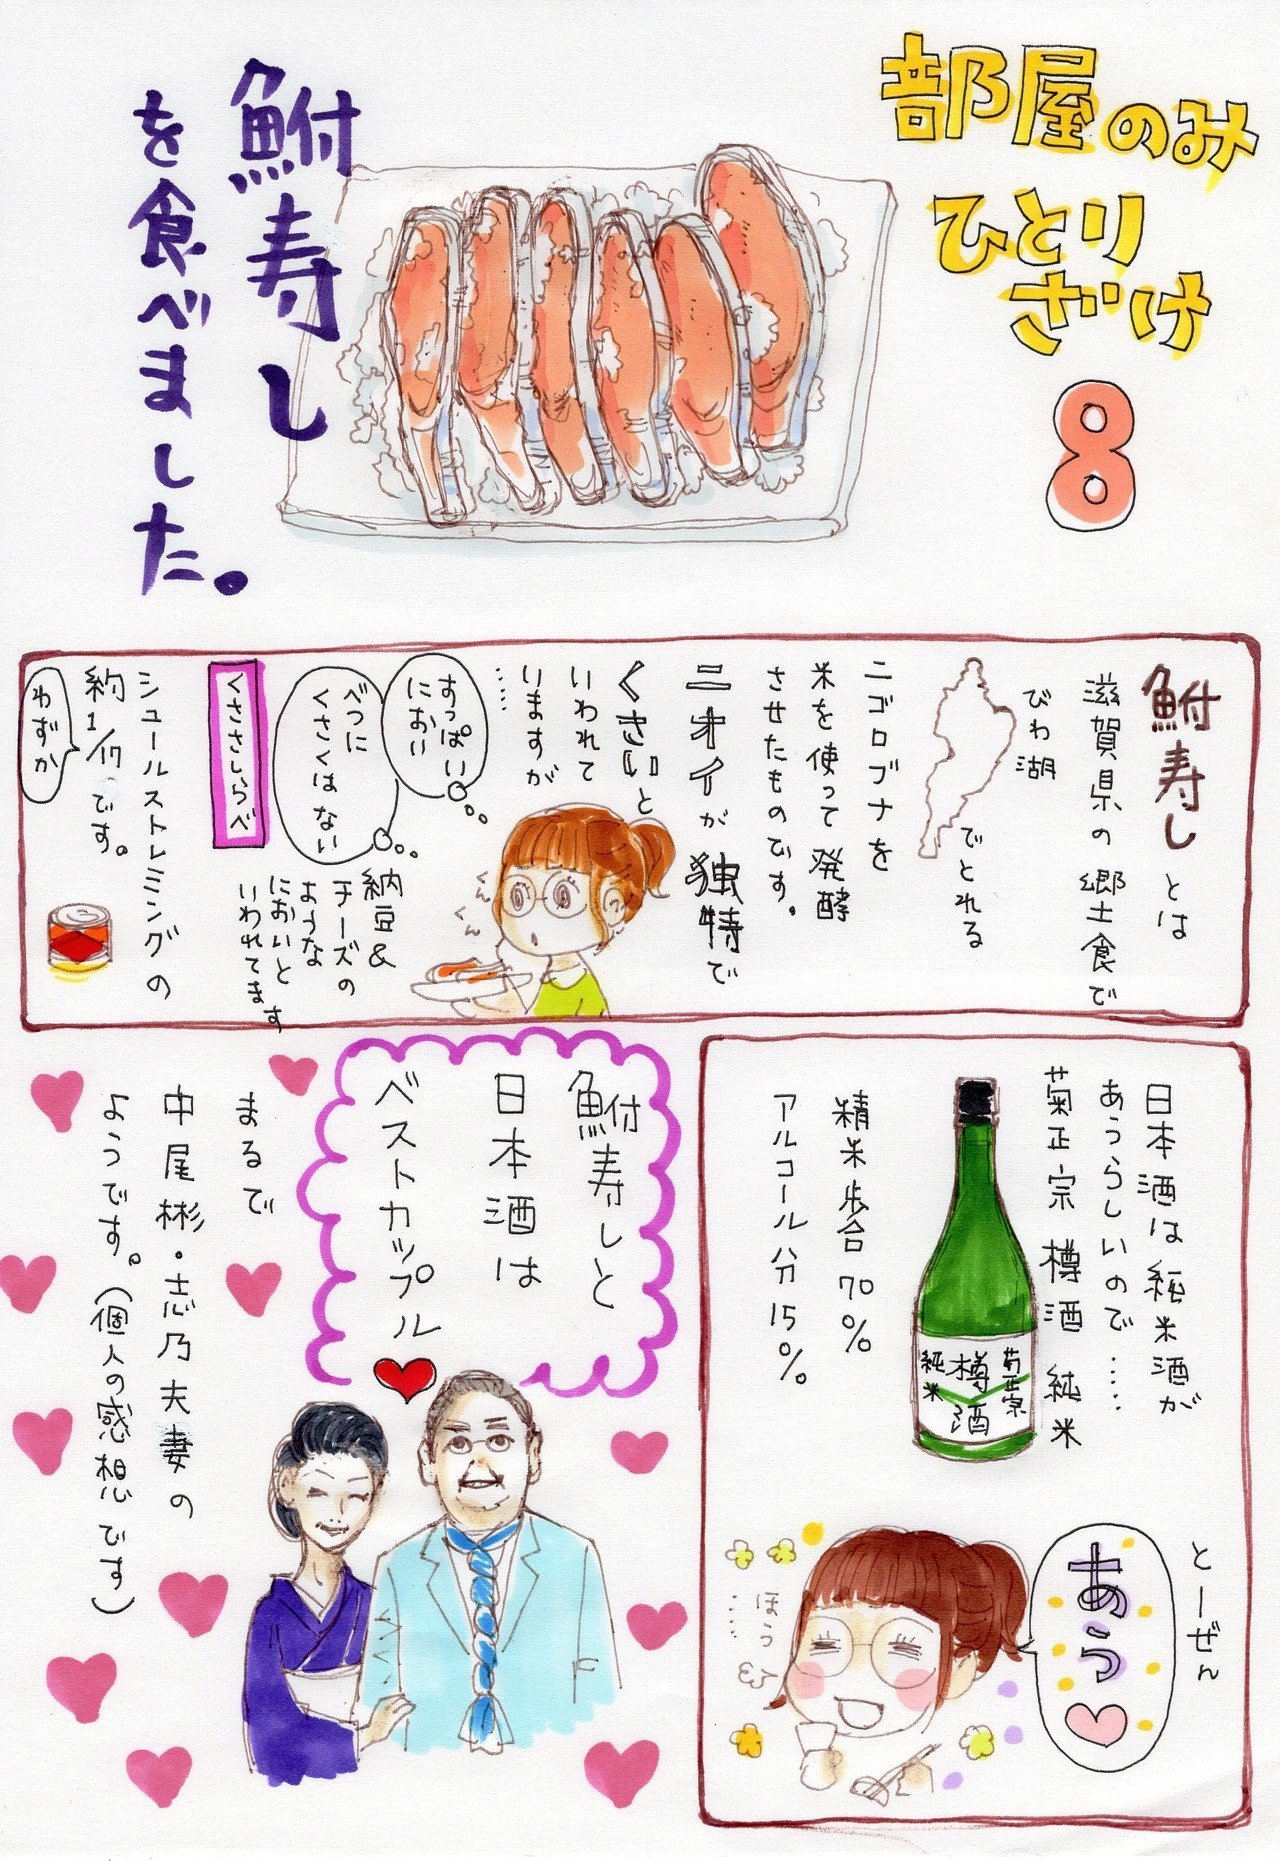 部屋のみ
ひとり
ざけ
8
鮒寿し
を食べました。
鮒寿しとは
滋賀県の郷土食で
びわ湖
でとれる
ニゴロブナを
米を使って発酵
させたものです。
ニオイが独特で
くさいと
いわれて
いますが
……
すっぱい
におい
べつに
くさくはない
くんくん
納豆&
チーズの
ような
においと
いわれてます
くささしらべ
シュールストレミングの
約1/17です。
わずか
日本酒は純米酒が
あうらしいので……
菊正宗 樽酒 純米
菊正宗
樽酒
純米
精米歩合70%
アルコール分15%
とーぜん
あう
ほう……
鮒寿しと
日本酒は
ベストカップル
まるで
中尾彬・志乃夫妻の
ようです。(個人の感想です)